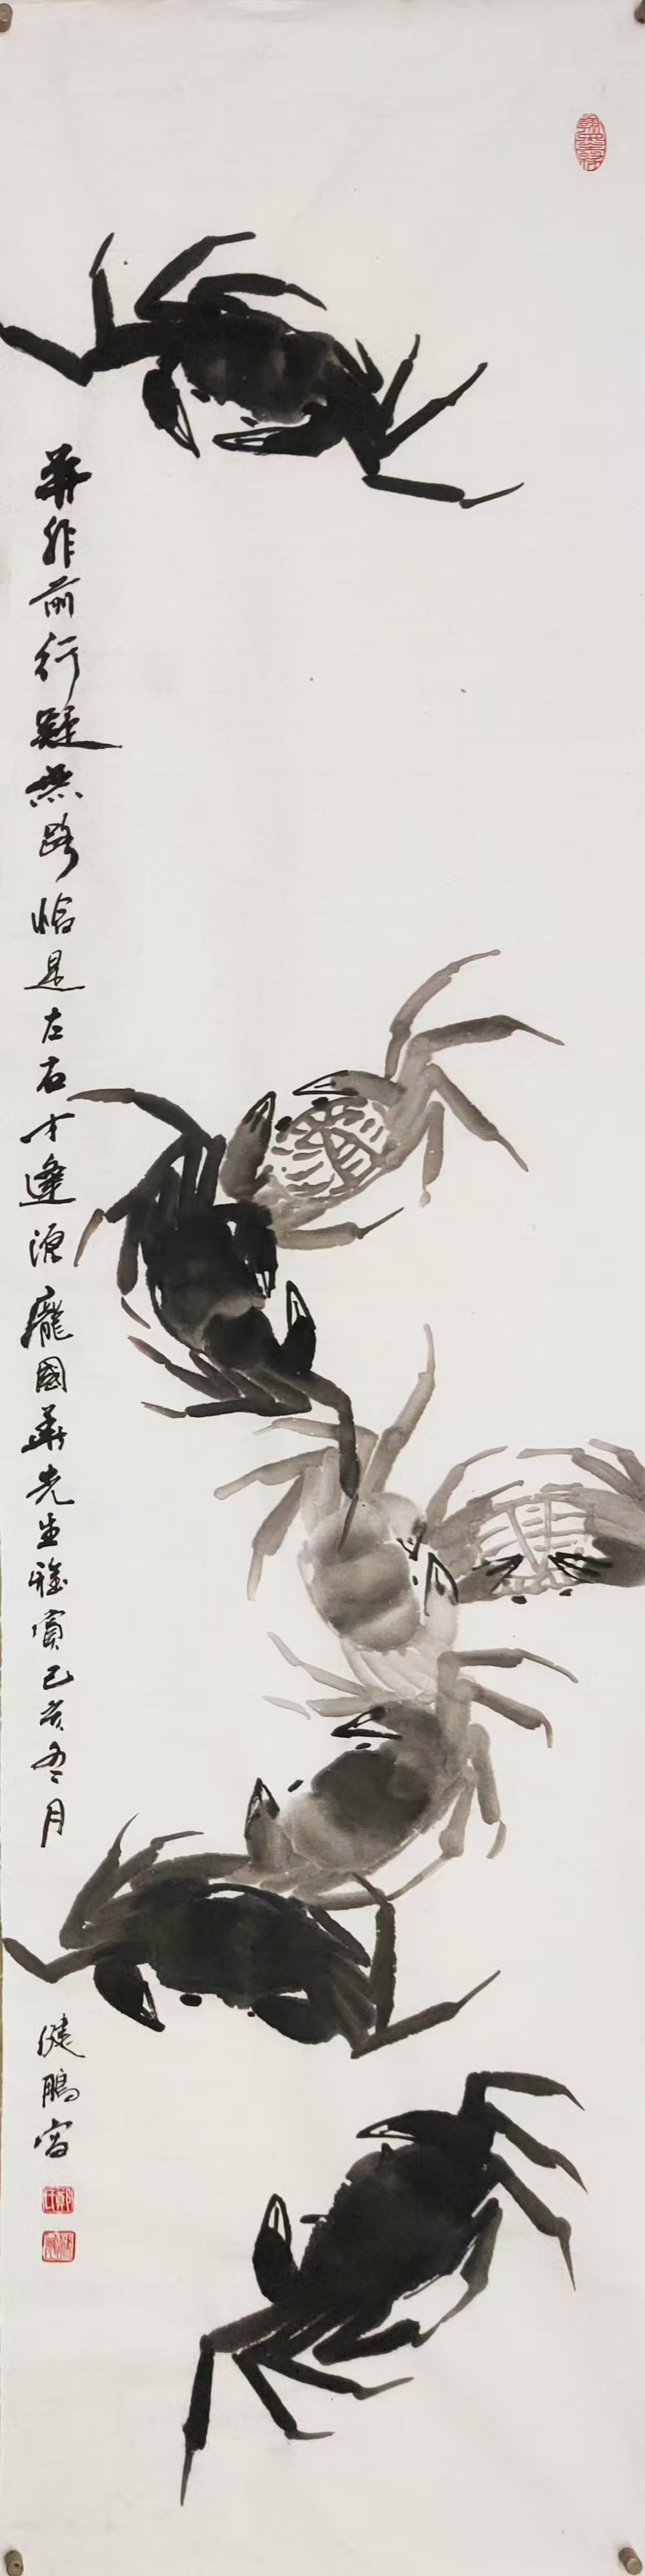 并非前行疑無路恰是左右才逢源龐國華先生雅賞己亥冬月
健鵬寫